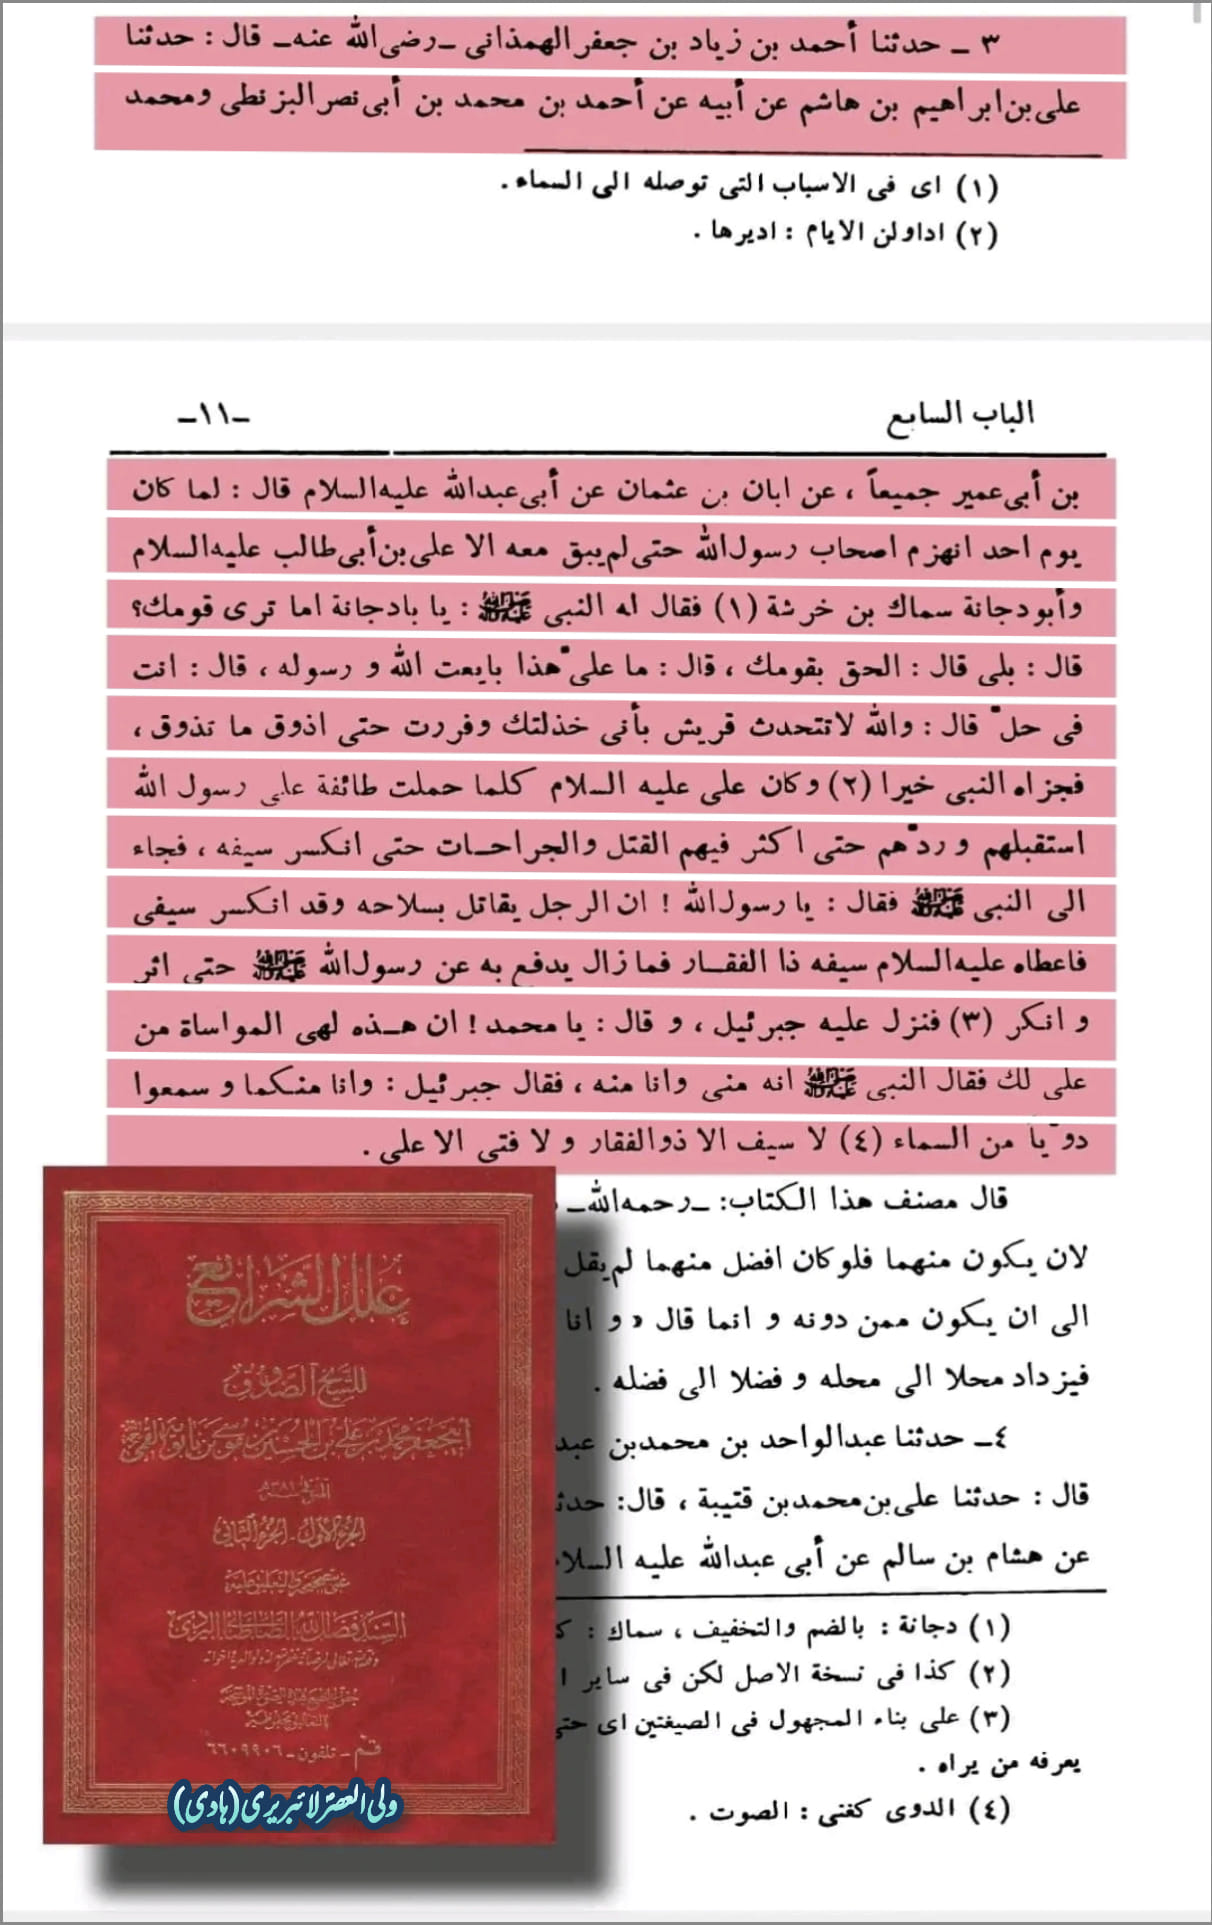 ٣ ـ حدثنا أحمد بن زياد بن جعفر الهمذانى ـرضى الله عنه ـ قال : حدثنا
على بن ابراهيم بن هاشم عن أبيه عن أحمد بن محمد بن أبى نصر البزنطى ومحمد
(١) اى فى الاسباب التى توصله الى السماء .
(٢) اداولن الايام : اديرها .
الباب السابع
ـ١١ـ
بن أبى عمير جميعاً ، عن ابان بن عثمان عن أبى عبدالله عليه السلام قال : لما كان
يوم احد انهزم اصحاب رسول الله حتى لم يبق معه الا على بن أبى طالب عليه السلام
وأبودجانة سماك بن خرشة (١) فقال له النبى ﷺ : يا بادجانة اما ترى قومك؟
قال : بلى قال : الحق بقومك ، قال : ما على هذا بايعت الله و رسوله ، قال : انت
فى حلّ قال : والله لاتتحدث قريش بأنى خذلتك وفررت حتى اذوق ما تذوق ،
فجزاه النبى خيرا (٢) وكان على عليه السلام كلما حملت طائفة على رسول الله
استقبلهم و ردّهم حتى اكثر فيهم القتل والجراحــات حتى انكسر سيفه ، فجاء
الى النبى ﷺ فقال : يا رسول الله ! ان الرجل يقاتل بسلاحه وقد انكسر سيفى
فاعطاه عليه السلام سيفه ذا الفقــار فما زال يدفع به عن رسول الله ﷺ حتى اثر
و انكر (٣) فنزل عليه جبرئيل ، و قال : يا محمد ! ان هــذه لهى المواساة من
على لك فقال النبى ﷺ انه منى وانا منه ، فقال جبرئيل : وانا منكما و سمعوا
دويّاً من السماء (٤) لا سيف الا ذوالفقار و لا فتى الا على .
قال مصنف هذا الكتاب: ـرحمه الله ـ
لان يكون منهما فلو كان افضل منهما لم يقل
الى ان يكون ممن دونه و انما قال « و انا
فيزداد محلا الى محله و فضلا الى فضله .
٤ـ حدثنا عبدالواحد بن محمد بن
قال : حدثنا على بن محمد بن قتيبة ، قال:
عن هشام بن سالم عن أبى عبدالله عليه
(١) دجانة : بالضم والتخفيف ، سماك :
(٢) كذا فى نسخة الاصل لكن فى ساير
(٣) على بناء المجهول فى الصيغتين اى
يعرفه من يراه .
(٤) الدوى كغنى : الصوت .
علل الشرايع
للشيخ الصدوق
أبي جعفر محمد بن علي بن الحسين بن موسى بن بابويه القمي
المتوفى سنة ٣٨١
الجزء الاول ـ الجزء الثاني
السيد فضل الله الطباطبائي اليزدي
قم ـ تلفون ـ ٦٦٠٩٩٠٦
ولی العصر لائبریری (ہادی)